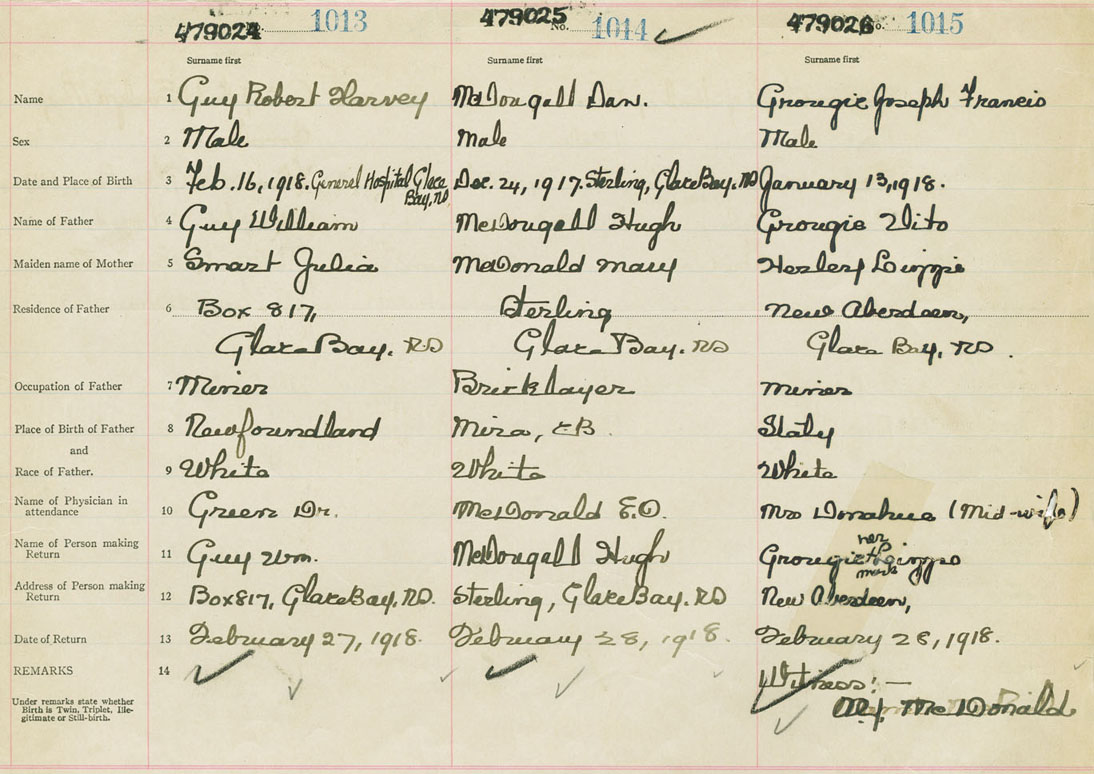 479024 1013 479025 No. 1014 479026 No. 1015
Surname first Surname first Surname first
Name 1 Guy Robert Harvey McDougall Dan. Grougie Joseph Francis
Sex 2 Male Male Male
Date and Place of Birth 3 Feb. 16, 1918. General Hospital Glace Dec. 24, 1917. Sterling, Glace Bay. NS January 13, 1918.
Bay, NS
Name of Father 4 Guy William McDougall Hugh Grougie Vito
Maiden name of Mother 5 Smart Julia McDonald Mary
Residence of Father 6 Box 817, Sterling New Aberdeen,
Glace Bay. NS Glace Bay. NS Glace Bay, NS.
Occupation of Father 7 Miner Bricklayer Miner
Place of Birth of Father 8 Newfoundland Mira, CB. Italy
and
Race of Father. 9 White White White
Name of Physician in
attendance 10 Green Dr. McDonald E.O. Mrs Donahue (Mid-wife)
Name of Person making her
Return 11 Guy Wm. McDougall Hugh Grougie
mark
Address of Person making
Return 12 Box 817, Glace Bay. NS. Sterling, Glace Bay. NS New Aberdeen,
Date of Return 13 February 27, 1918. February 28, 1918. February 28, 1918.
REMARKS 14 Witness:—
Under remarks state whether
Birth is Twin, Triplet, Ille-
gitimate or Still-birth.
McDonald